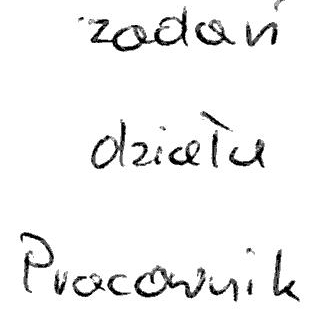 zadań
działu
Pracownik